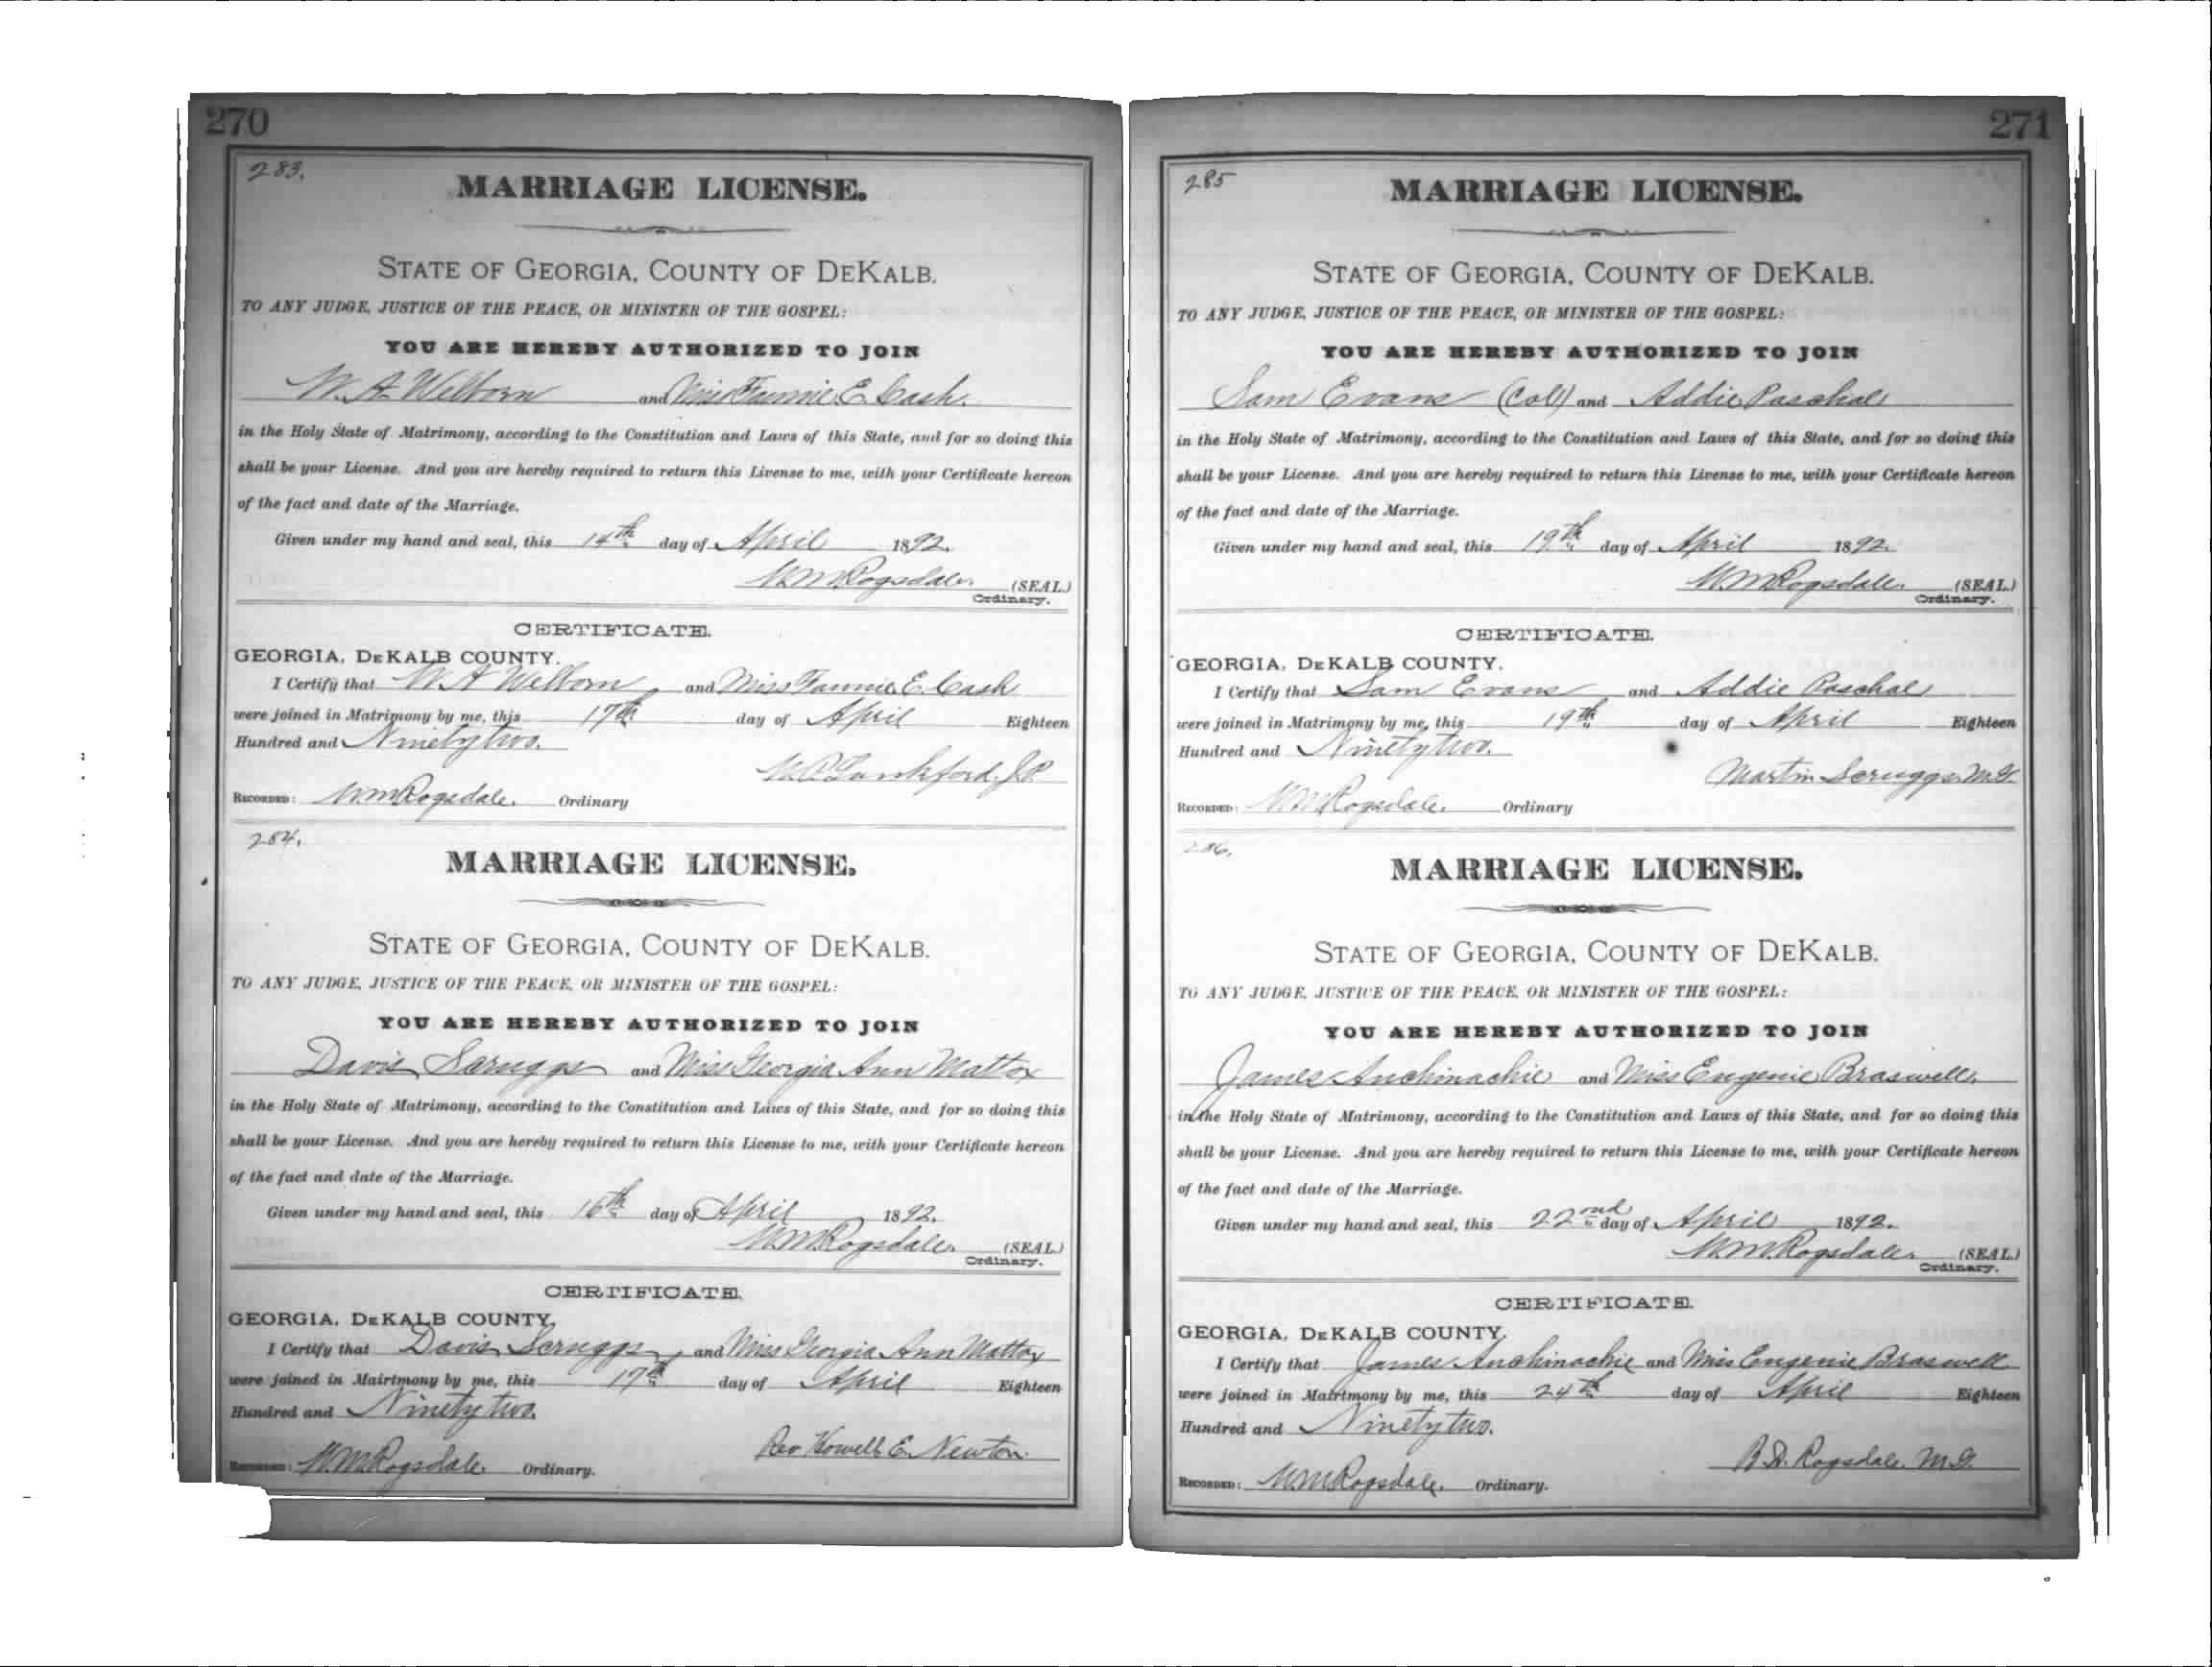 270
283.
MARRIAGE LICENSE.
STATE OF GEORGIA, COUNTY OF DEKALB.
TO ANY JUDGE, JUSTICE OF THE PEACE, OR MINISTER OF THE GOSPEL:
YOU ARE HEREBY AUTHORIZED TO JOIN
W. A. Welborn and Miss Fannie E. Cash.
in the Holy State of Matrimony, according to the Constitution and Laws of this State, and for so doing this
shall be your License. And you are hereby required to return this License to me, with your Certificate hereon
of the fact and date of the Marriage.
Given under my hand and seal, this 14th day of April 1892.
W. M. Ragsdale. (SEAL)
Ordinary.
CERTIFICATE.
GEORGIA, DEKALB COUNTY.
I Certify that W. A Welborn and Miss Fannie E. Cash
were joined in Matrimony by me, this 17th day of April Eighteen
Hundred and Ninety two.
Lankford. J.P.
RECORDED: W. M. Ragsdale. Ordinary
284.
MARRIAGE LICENSE.
STATE OF GEORGIA, COUNTY OF DEKALB.
TO ANY JUDGE, JUSTICE OF THE PEACE, OR MINISTER OF THE GOSPEL:
YOU ARE HEREBY AUTHORIZED TO JOIN
Davis Scruggs and Miss Georgia Ann Mattox
in the Holy State of Matrimony, according to the Constitution and Laws of this State, and for so doing this
shall be your License. And you are hereby required to return this License to me, with your Certificate hereon
of the fact and date of the Marriage.
Given under my hand and seal, this 16th day of April 1892.
W. M. Ragsdale. (SEAL)
Ordinary.
CERTIFICATE.
GEORGIA, DEKALB COUNTY,
I Certify that Davis Scruggs and Miss Georgia Ann Mattox
were joined in Mairtmony by me, this 17th day of April Eighteen
Hundred and Ninety two.
Rev Howell E. Newton.
RECORDED: W. M. Ragsdale. Ordinary.
271
285
MARRIAGE LICENSE.
STATE OF GEORGIA, COUNTY OF DEKALB.
TO ANY JUDGE, JUSTICE OF THE PEACE, OR MINISTER OF THE GOSPEL:
YOU ARE HEREBY AUTHORIZED TO JOIN
Sam Evans (Col) and Addie Paschal
in the Holy State of Matrimony, according to the Constitution and Laws of this State, and for so doing this
shall be your License. And you are hereby required to return this License to me, with your Certificate hereon
of the fact and date of the Marriage.
Given under my hand and seal, this 19th day of April 1892.
W. M. Ragsdale. (SEAL)
Ordinary.
CERTIFICATE.
GEORGIA, DEKALB COUNTY.
I Certify that Sam Evans and Addie Paschal
were joined in Matrimony by me, this 19th day of April Eighteen
Hundred and Ninety two.
Martin Scruggs M.G.
RECORDED: W. M. Ragsdale. Ordinary
286.
MARRIAGE LICENSE.
STATE OF GEORGIA, COUNTY OF DEKALB.
TO ANY JUDGE, JUSTICE OF THE PEACE, OR MINISTER OF THE GOSPEL:
YOU ARE HEREBY AUTHORIZED TO JOIN
James Auchinachie and Miss Eugenie Braswell.
in the Holy State of Matrimony, according to the Constitution and Laws of this State, and for so doing this
shall be your License. And you are hereby required to return this License to me, with your Certificate hereon
of the fact and date of the Marriage.
Given under my hand and seal, this 22nd day of April 1892.
W. M. Ragsdale. (SEAL)
Ordinary.
CERTIFICATE.
GEORGIA, DEKALB COUNTY.
I Certify that James Auchinachie and Miss Eugenie Braswell
were joined in Mairtmony by me, this 24th day of April Eighteen
Hundred and Ninety two.
Ragsdale. M.G.
RECORDED: W. M. Ragsdale. Ordinary.